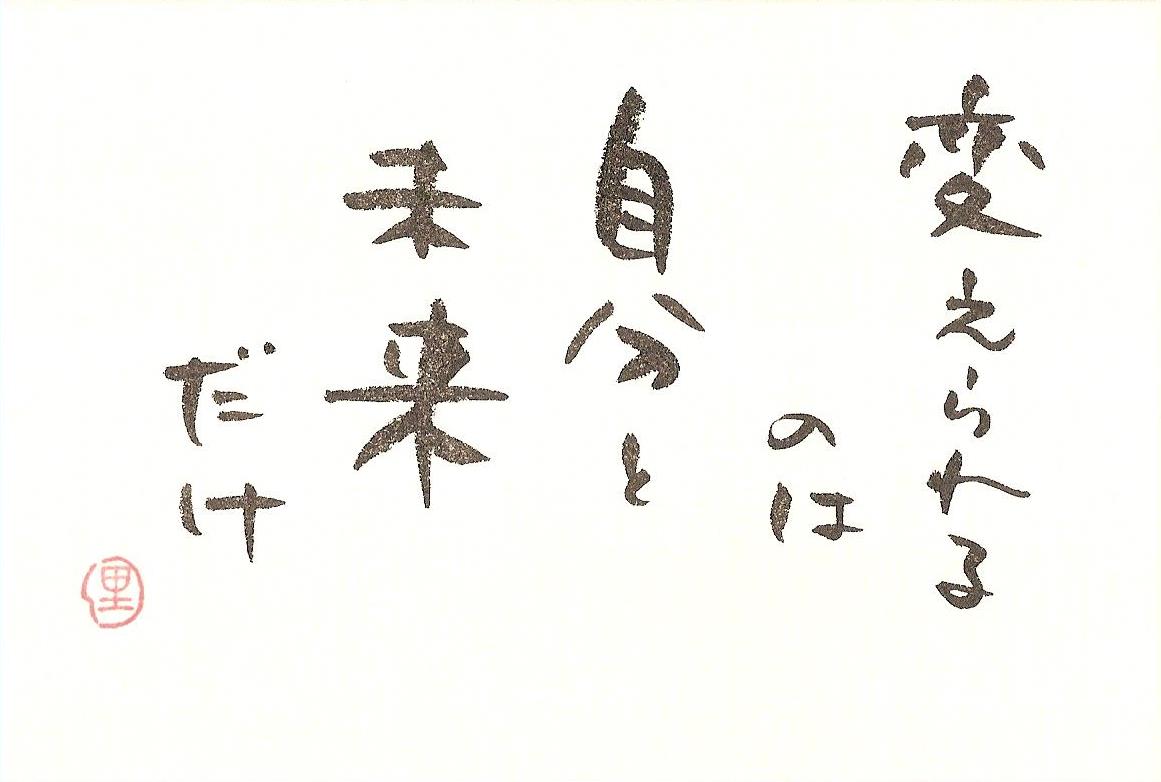 変えられる
のは
自分と
未来
だけ
里